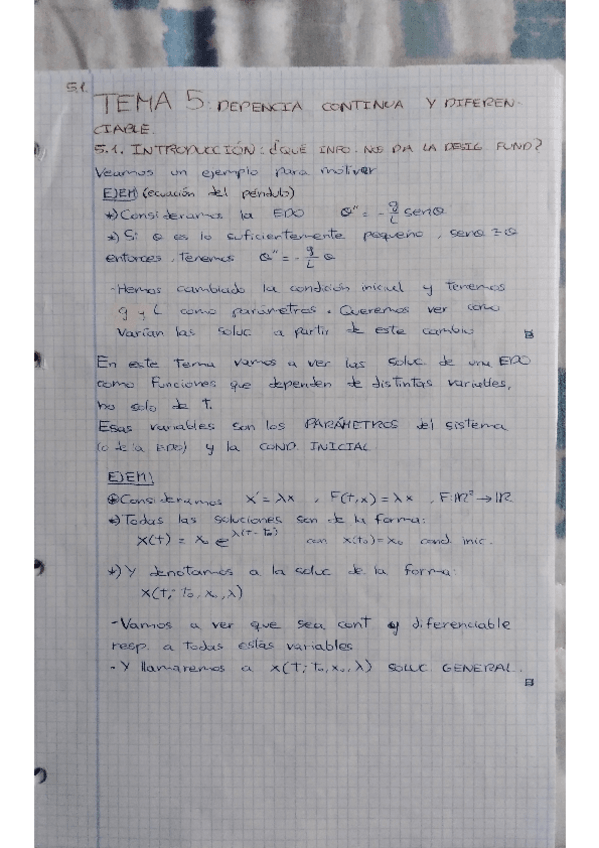 5.1.
TEMA 5: DEPENCIA CONTINUA Y DIFEREN-
CIABLE.
5.1. INTRODUCCIÓN: ¿QUÉ INFO. NOS DA LA DESIG. FUND?
Veamos un ejemplo para motivar
EJEM (ecuación del péndulo)
*) Consideramos la EDO θ'' = - g/L senθ
*) Si θ es lo suficientemente pequeño, senθ ≈ θ
entonces, tenemos θ'' = - g/L θ
- Hemos cambiado la condición inicial y tenemos
g y L como parámetros. Queremos ver como
varían las soluc a partir de este cambio
En este Tema vamos a ver las soluc. de una EDO
como funciones que dependen de distintas variables,
no solo de t.
Esas variables son los PARÁMETROS del sistema
(o de la EDO) y la COND INICIAL
EJEM)
*) Consideramos x' = λx , F(t,x) = λx , F: ℝ² → ℝ
*) Todas las soluciones son de la forma:
x(t) = x₀ e^λ(t-t₀) con x(t₀) = x₀ cond. inic.
*) Y denotamos a la soluc de la forma:
x(t; t₀, x₀, λ)
- Vamos a ver que sea cont y diferenciable
resp. a todas estas variables
- Y llamaremos a x(t; t₀, x₀, λ) SOLUC. GENERAL.